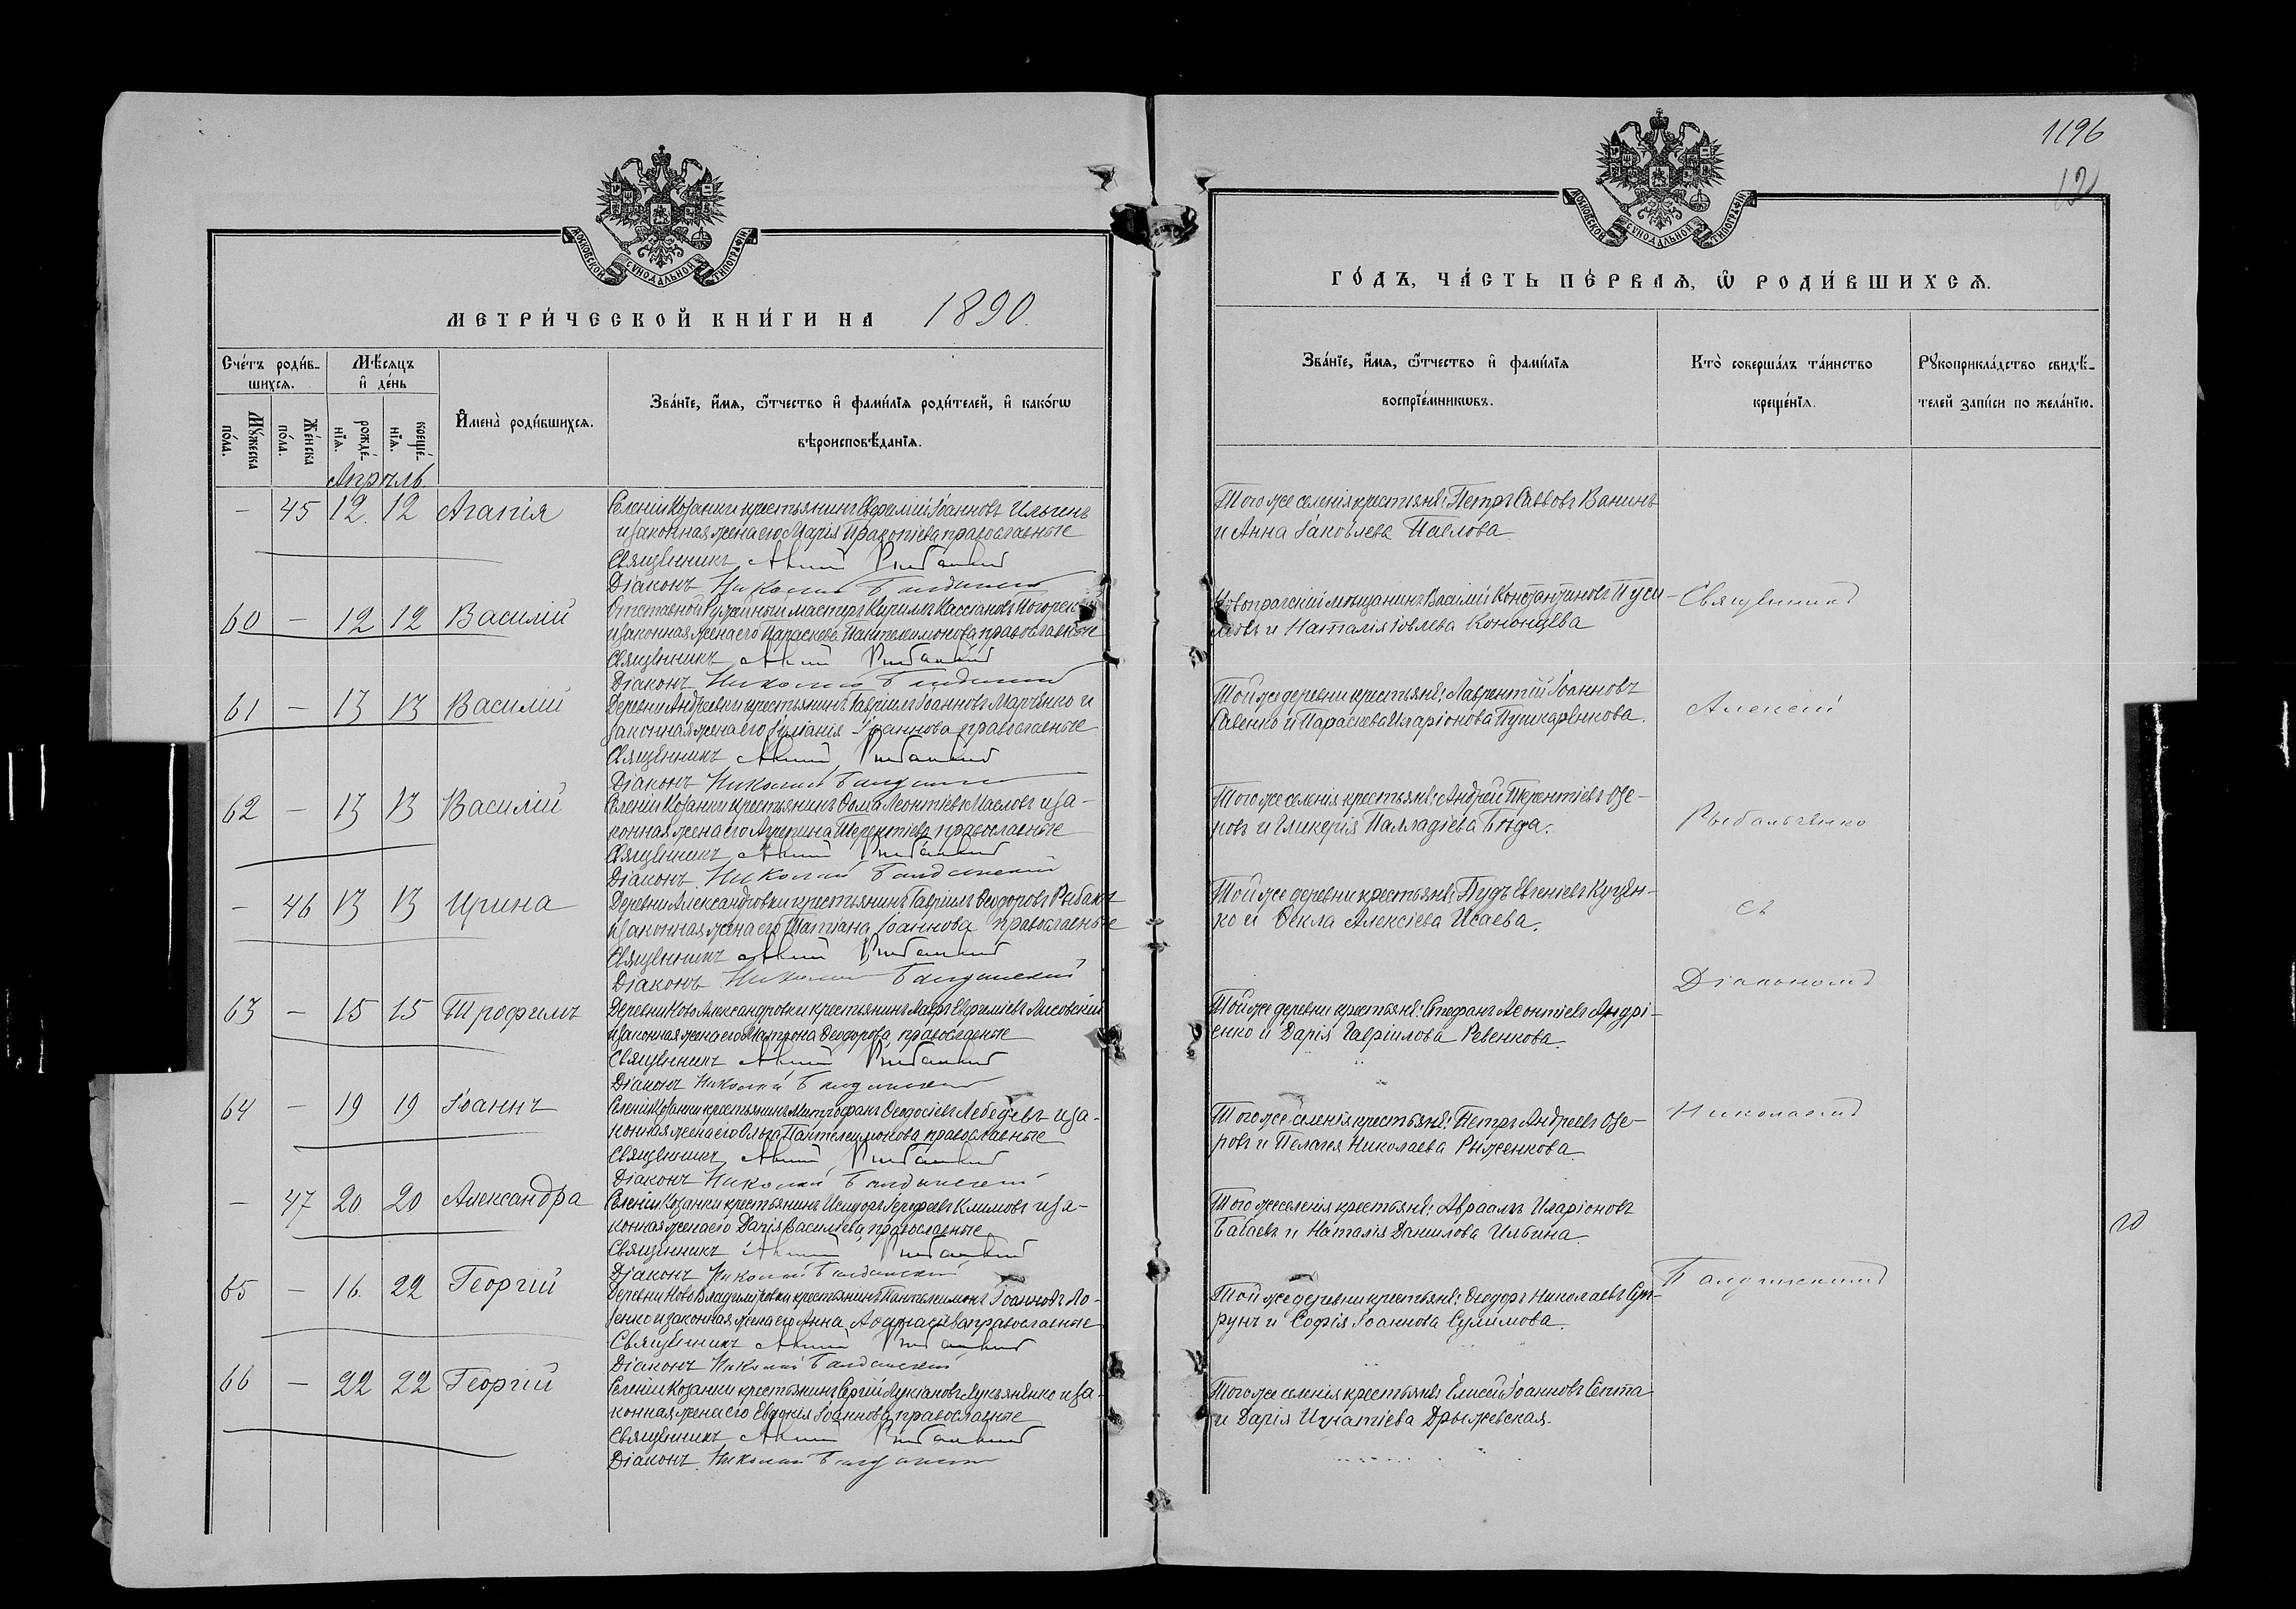 МОСКОВСКОЙ СѴНОДАЛЬНОЙ ТИПОГРАФІИ
МЕТРИ́ЧЕСКОЙ КНИ́ГИ НА 1890.
Сче́тъ роди́в-
шихсѧ.
Мѹ́жеска
по́ла.
Же́нска
по́ла.
Мѣ́сѧцъ
и҆ де́нь
рожде́-
нїѧ.
креще́-
нїѧ.
Апрѣль.
И҆мена̀ роди́вшихсѧ.
Зва́нїе, и҆́мѧ, ѻ҆́тчество и҆ фами́лїѧ роди́телей, и҆ како́гѡ
вѣроисповѣ́данїѧ.
— 45 12. 12 Агапія
Селенія Козанки крестьянинъ Ефимій Іоанновъ Ильинъ
и законная жена его Марія Прокопіева православные
Священникъ
Діаконъ Николай
60 — 12 12 Василій
Отставной Ружейный мастеръ Кириллъ Кассіановъ
и законная жена его Параскева Пантелеимонова православные
Священникъ
Діаконъ Николай
61 — 13 13 Василій
Деревни Андреевки крестьянинъ Гавріилъ Іоанновъ Марченко и
законная жена его Іуліанія Іоаннова православные
Священникъ
Діаконъ Николай
62 — 13 13 Василій
Селенія Козанки крестьянинъ Ѳома Леонтіевъ Масловъ и за-
конная жена его Агрипина Терентіева православные
Священникъ
Діаконъ Николай Балдинскій
— 46 13 13 Ирина
Деревни Александровки крестьянинъ Гавріилъ Ѳеодоровъ Рыбакъ
и законная жена его Татіана Іоаннова православные
Священникъ
Діаконъ Николай Балдинскій
63 — 15 15 Трофимъ
Деревни Ново Александровки крестьянинъ Лавръ Евфиміевъ Лисовскій
и законная жена его Матрона Ѳеодорова, православные
Священникъ
Діаконъ Николай
64 — 19 19 Іоаннъ
Селенія Козанки крестьянинъ Митрофанъ Ѳеодосіевъ Лебедевъ и за-
конная жена его Ольга Пантелеимонова православные
Священникъ
Діаконъ Николай Балдинскій
— 47 20 20 Александра
Селенія Козанки крестьянинъ Исидоръ Климовъ и за-
конная жена его Дарія Василіева, православные
Священникъ
Діаконъ Николай Балдинскій
65 — 16. 22 Георгій
Деревни Ново Владиміровки крестьянинъ Пантелеимонъ Іоанновъ Ло-
зенко и законная жена его Анна Аѳанасіева православные
Священникъ
Діаконъ Николай Балдинскій
66 — 22 22 Георгій
Селенія Козанки крестьянинъ Сергій Лукіановъ Лукьяненко и за-
конная жена его Евдокія Іоаннова, православные
Священникъ
Діаконъ Николай
1196
12
МОСКОВСКОЙ СѴНОДАЛЬНОЙ ТИПОГРАФІИ
ГО́ДЪ, ЧА́СТЬ ПЕ́РВАѦ, Ѡ҆ РОДИ́ВШИХСѦ.
Зва́нїе, и҆́мѧ, ѻ҆́тчество и҆ фами́лїѧ
воспрїе́мникѡвъ.
Кто̀ соверша́лъ та́инство
креще́нїѧ.
Рѹкоприкла́дство свидѣ́-
телей за́писи по жела́нїю.
Того же селенія крестьяне: Петръ Саввовъ Ванинъ
и Анна Іаковлева Павлова
Новопрагскій мещанинъ Василій Константиновъ
и Наталія Іовлева Кононцева
Той же деревни крестьяне: Лаврентій Іоанновъ
Савенко и Параскева Иларіонова Пушкаренкова.
Того же селенія крестьяне: Андрей Терентіевъ Озе-
ровъ и Гликерія Палладіева Беда.
Той же деревни крестьяне: Пудъ Евгеніевъ Куцен-
ко и Ѳекла Алексіева Исаева.
Той же деревни крестьяне: Стефанъ Леонтіевъ Андрі-
енко и Дарія Гавріилова Ревенкова.
Того же селенія крестьяне: Петръ Андреевъ Озе-
ровъ и Пелагія Николаева Рыженкова.
Того же селенія крестьяне: Авраамъ Иларіоновъ
Бабаевъ и Наталія Данилова Ильина.
Той же деревни крестьяне: Ѳеодоръ Николаевъ Суп-
рунъ и Софія Іоаннова Сулимова.
Того же селенія крестьяне: Елисей Іоанновъ Септа
и Дарія Игнатіева Дрыжевская.
Священникъ
Алексій
Рыбальченко
съ
Діакономъ
Николаемъ
Балдинскимъ